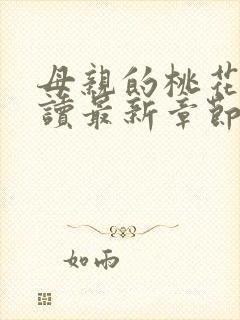 母親的桃花
讀最新章節
如雨